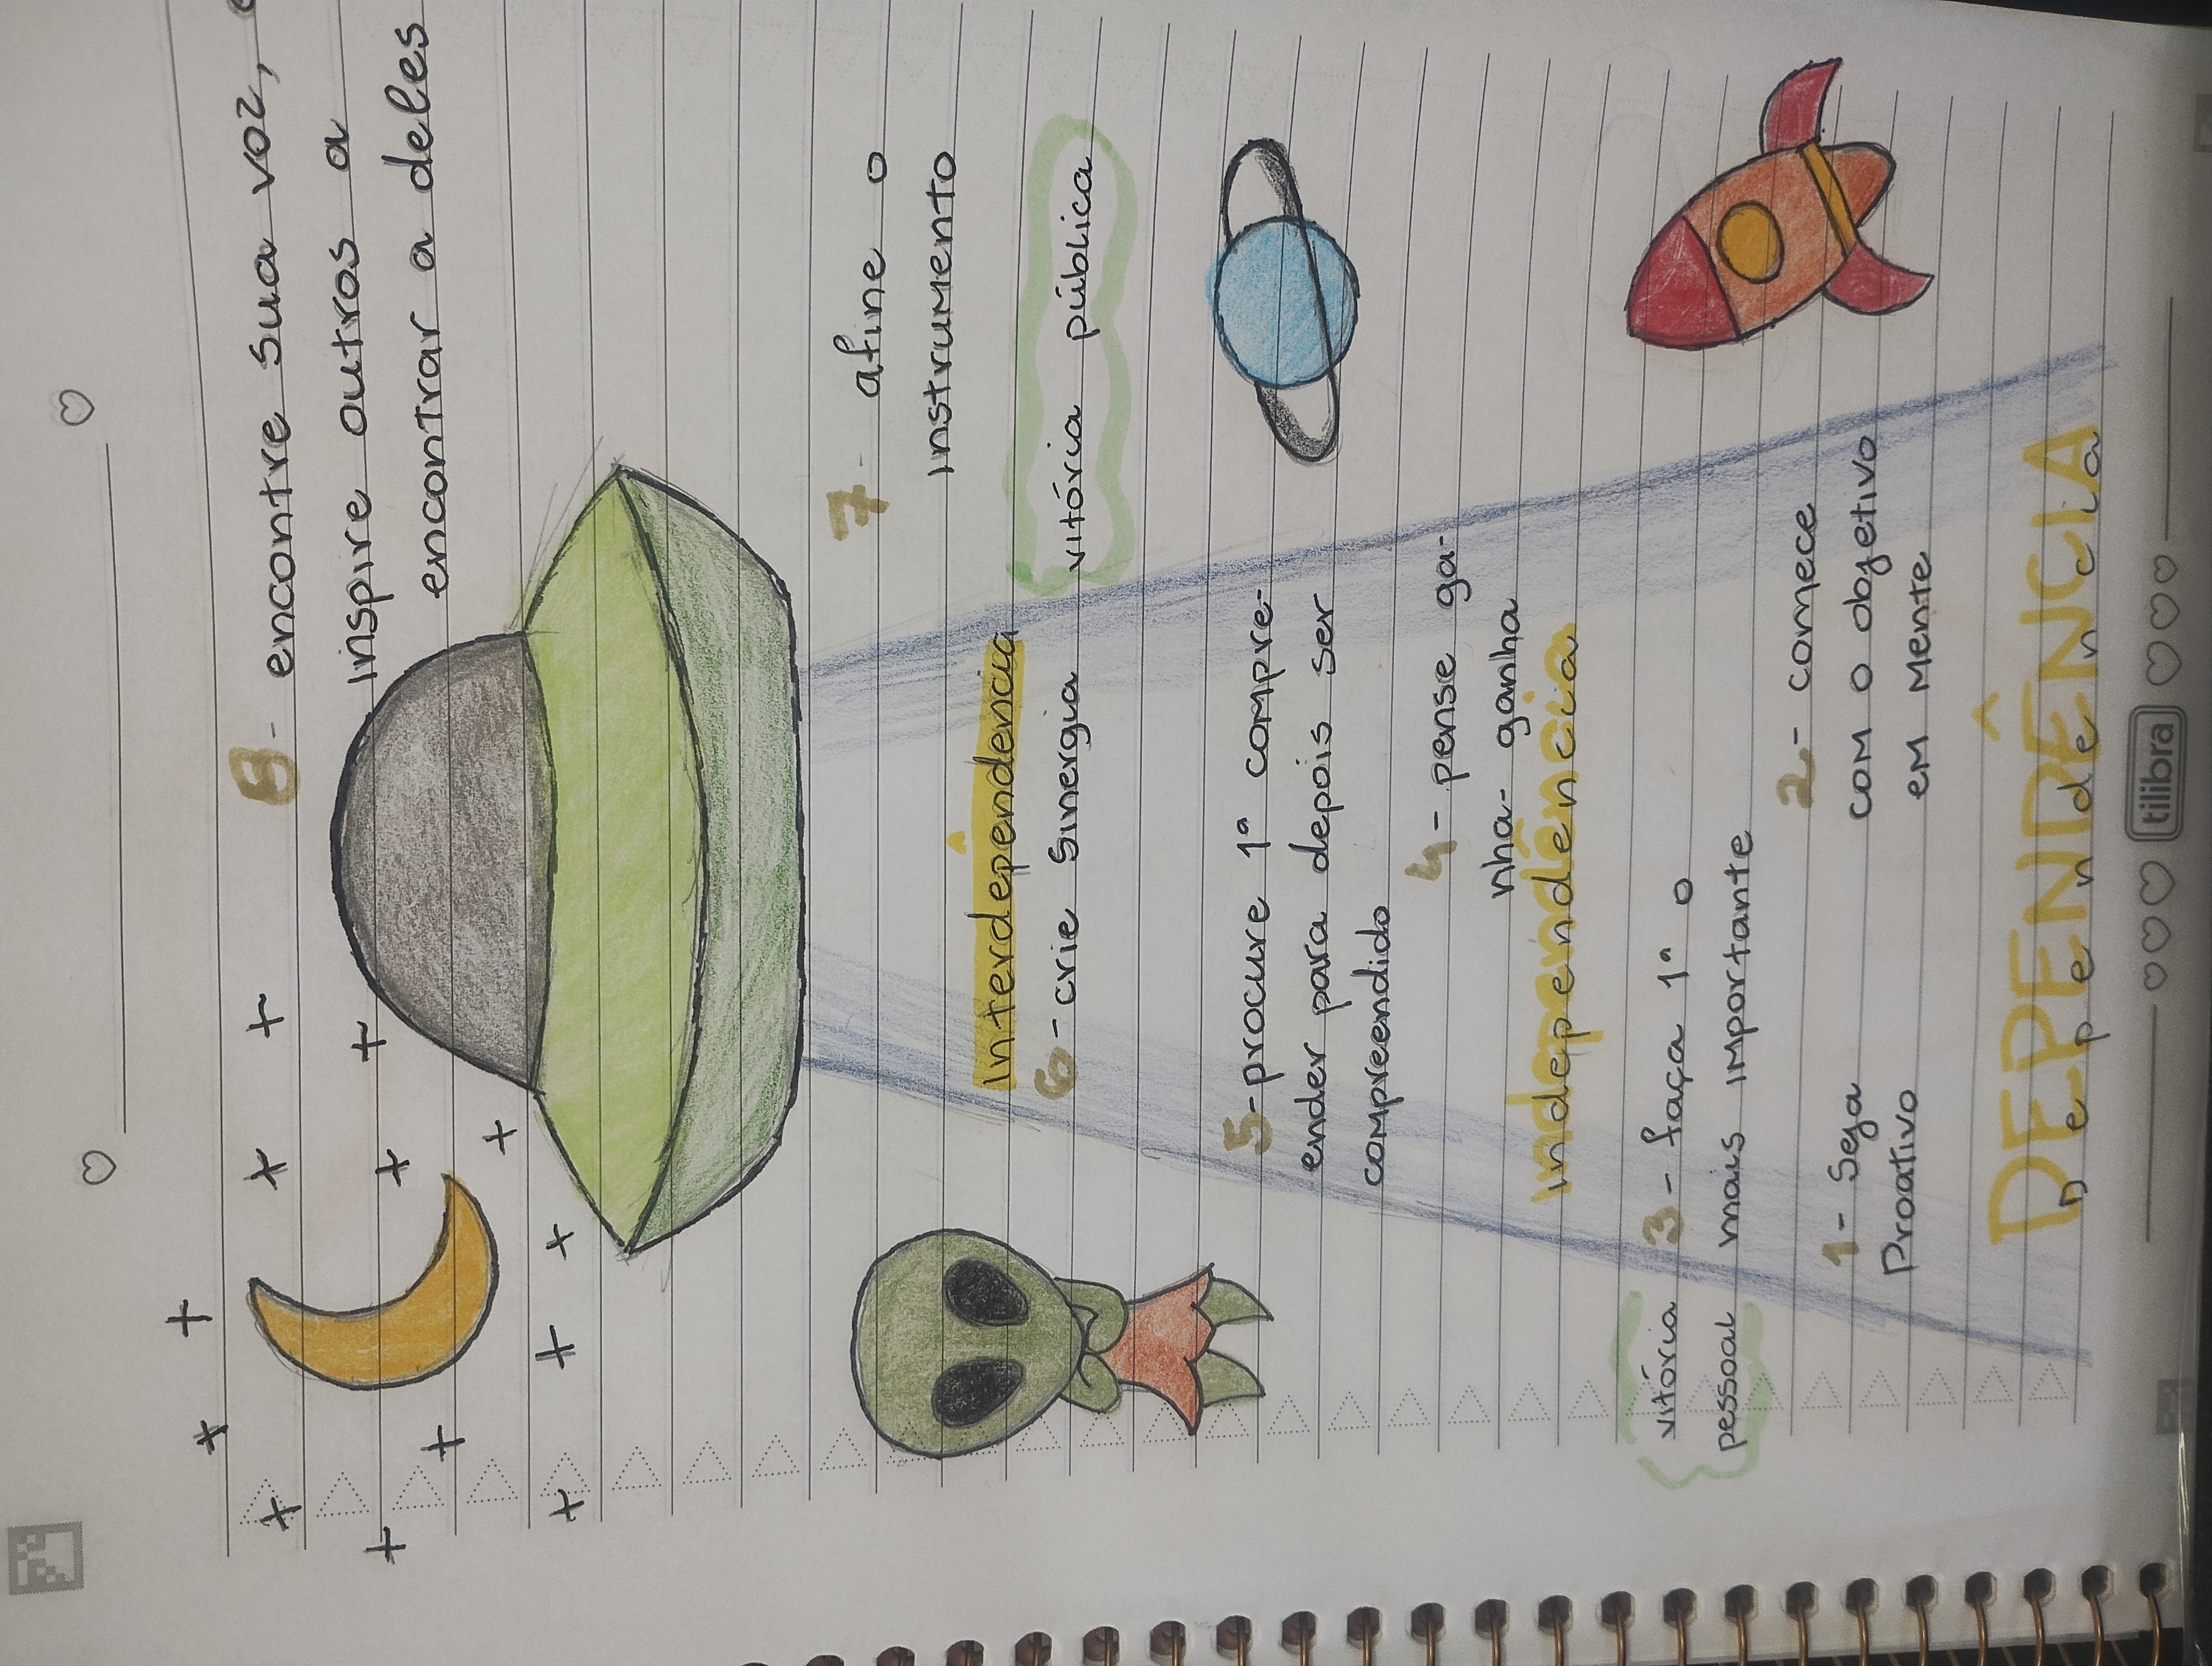 8- encontre sua voz,
inspire outros a
encontrar a deles
7- afine o
instrumento
interdependência
6- crie sinergia vitória pública
5- procure 1ª compre-
ender para depois ser
compreendido
4- pense ga-
nha- ganha
independência
3- faça 1ª o
mais importante
vitória
pessoal
2- comece
com o objetivo
em mente
1- Seja
Proativo
DEPENDÊNCIA
Dependencia
tilibra